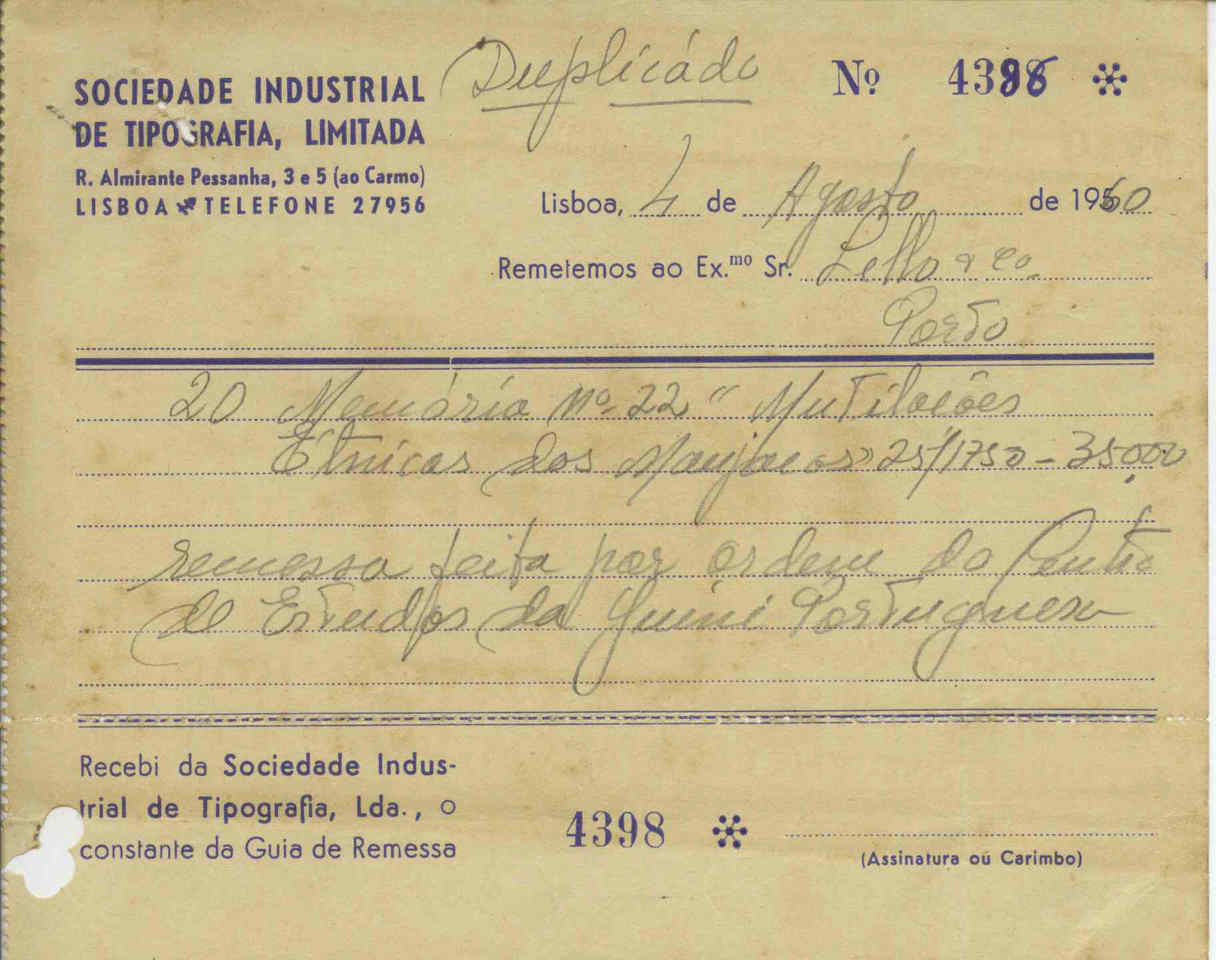 SOCIEDADE INDUSTRIAL
DE TIPOGRAFIA, LIMITADA
R. Almirante Pessanha, 3 e 5 (ao Carmo)
LISBOA TELEFONE 27956
Duplicádo
Nº 4386
Lisboa, 4 de Agosto de 1960
Remetemos ao Ex.mo Sr. Lello & Cª.
Porto
20 Memória nº 22 "Mutilações
Étnicas dos Manjacos" 25/1750 - 35000
remessa feita por ordem do Centro
de Estudos da Guiné Portuguesa
Recebi da Sociedade Indus-
trial de Tipografia, Lda., o
constante da Guia de Remessa
4398
(Assinatura ou Carimbo)